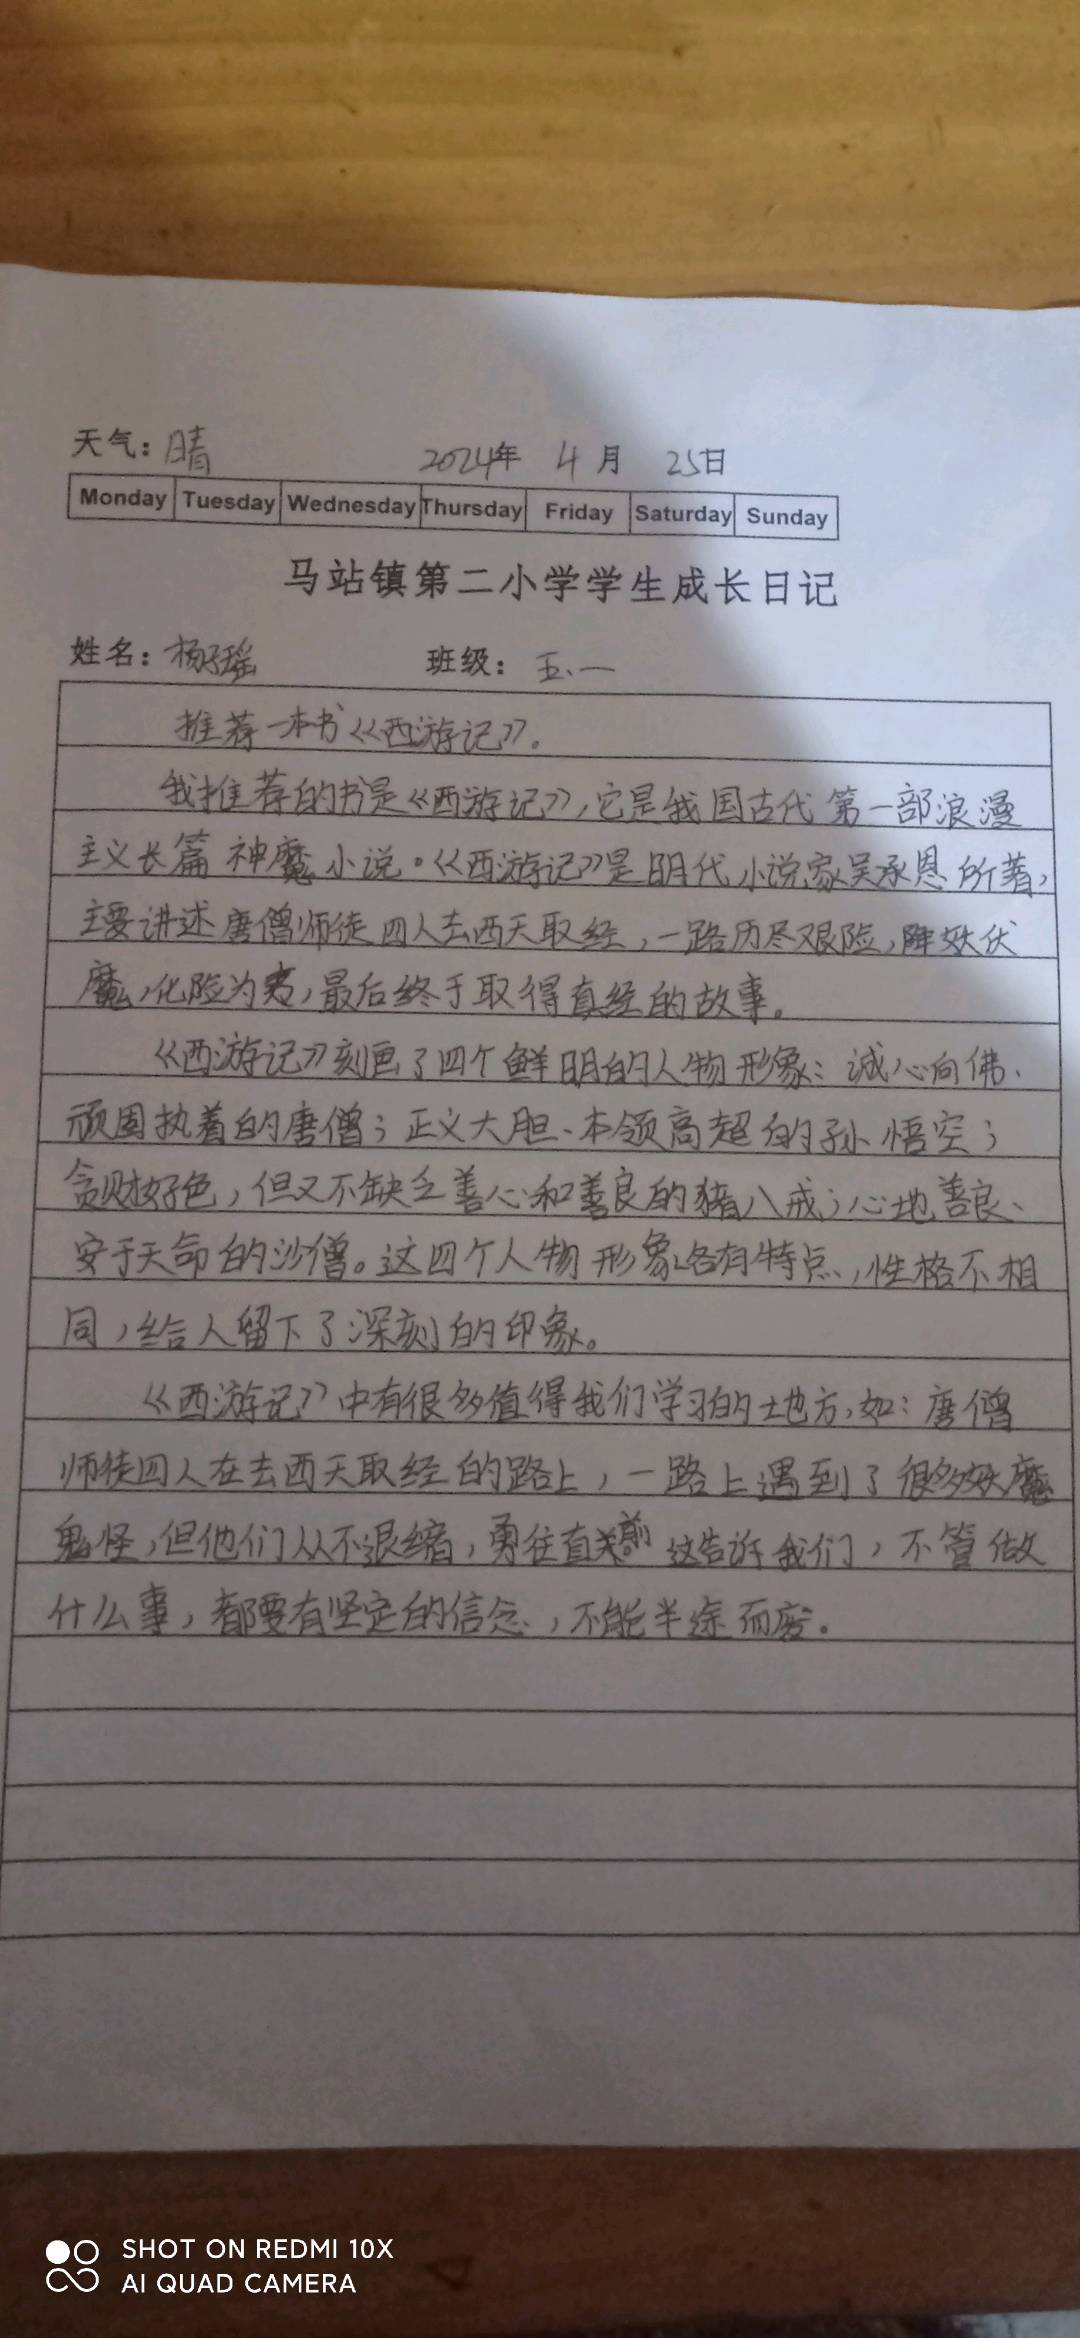 天气：晴 2024年 4月 25日
Monday Tuesday Wednesday Thursday Friday Saturday Sunday
马站镇第二小学学生成长日记
姓名：杨子瑶 班级：五、一
推荐一本书《西游记》。
我推荐的书是《西游记》，它是我国古代第一部浪漫
主义长篇神魔小说。《西游记》是明代小说家吴承恩所著，
主要讲述唐僧师徒四人去西天取经，一路历尽艰险，降妖伏
魔，化险为夷，最后终于取得真经的故事。
《西游记》刻画了四个鲜明的人物形象：诚心向佛、
顽固执着的唐僧；正义大胆、本领高超的孙悟空；
贪财好色，但又不缺乏善心和善良的猪八戒；心地善良、
安于天命的沙僧。这四个人物形象各有特点，性格不相
同，给人留下了深刻的印象。
《西游记》中有很多值得我们学习的地方，如：唐僧
师徒四人在去西天取经的路上，一路上遇到了很多妖魔
鬼怪，但他们从不退缩，勇往直前 这告诉我们，不管做
什么事，都要有坚定的信念，不能半途而废。
SHOT ON REDMI 10X
AI QUAD CAMERA